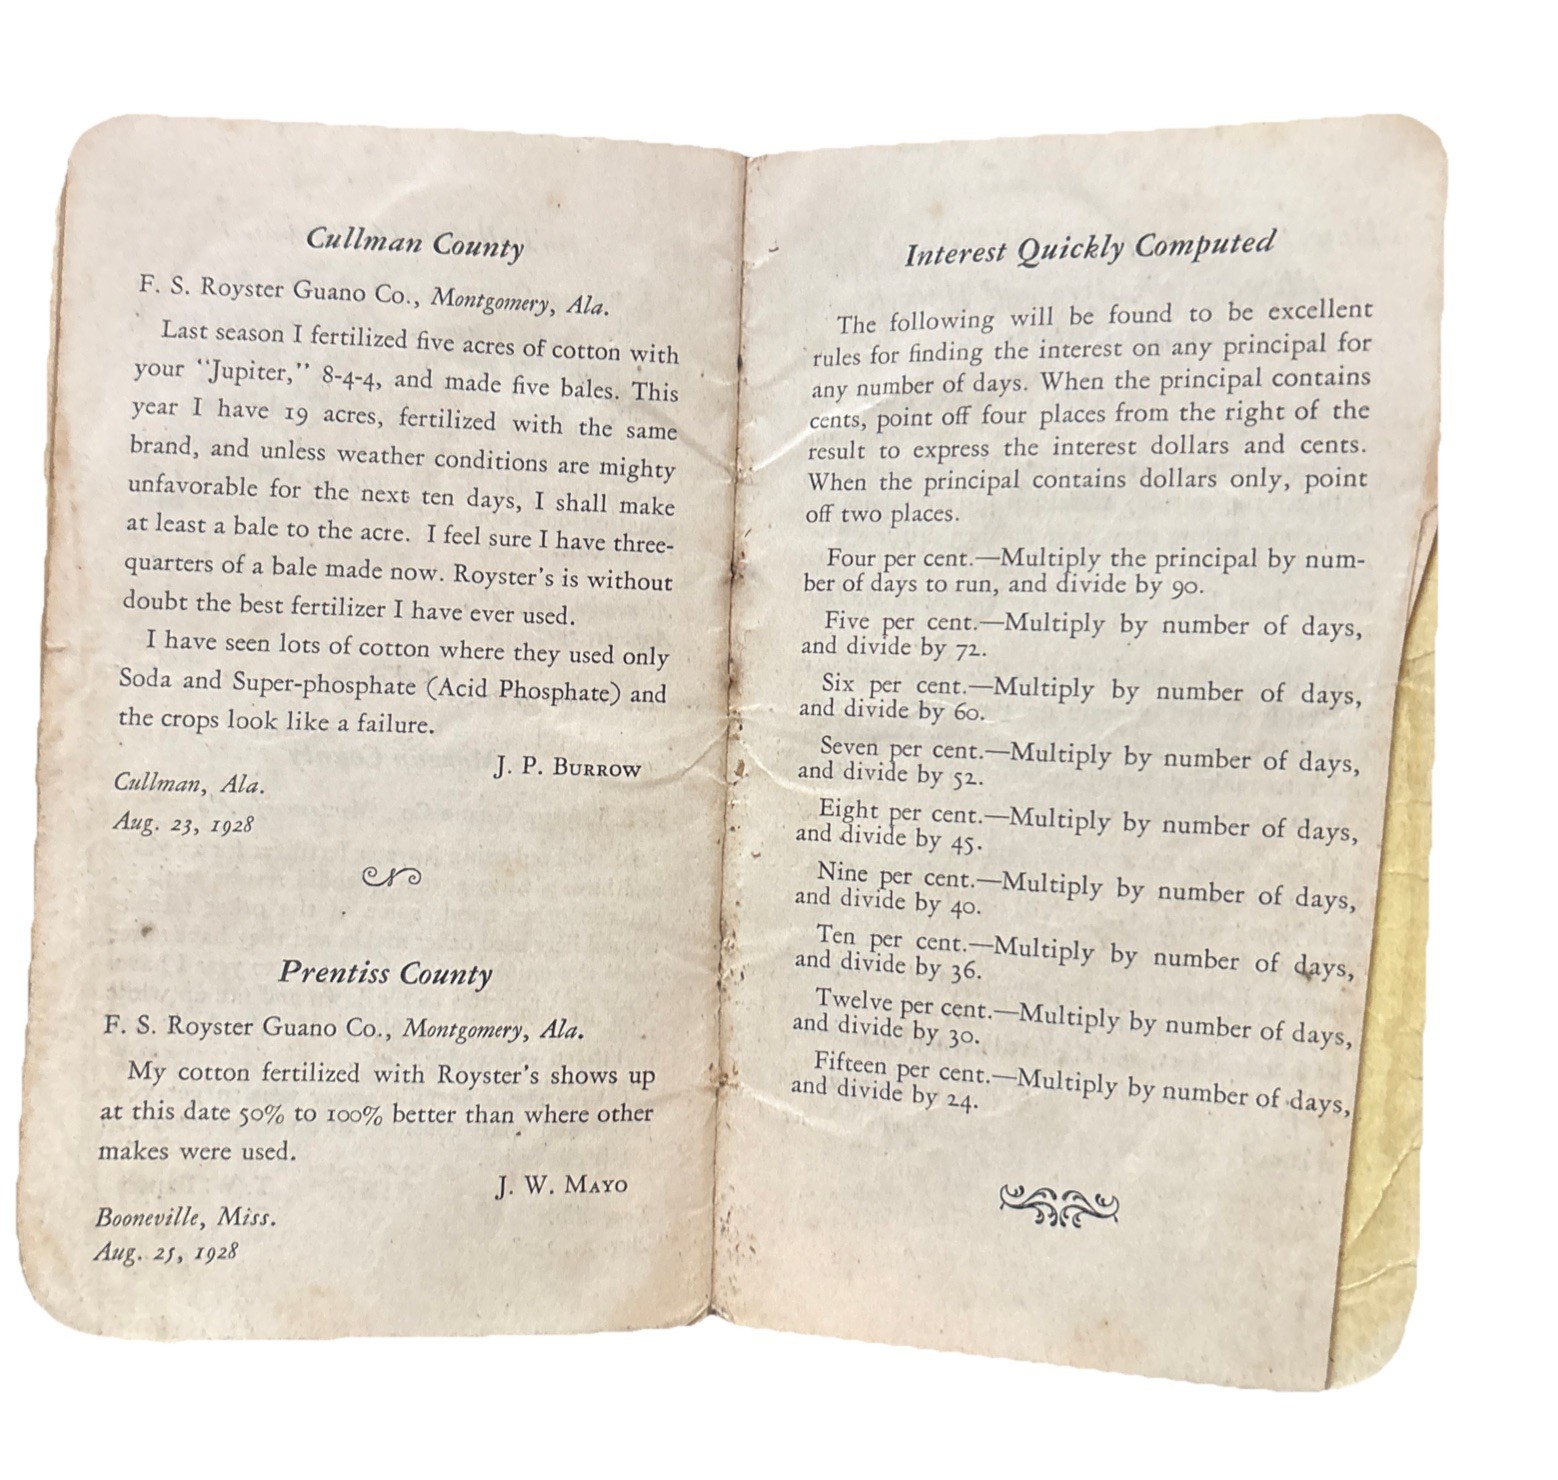 Cullman County
F. S. Royster Guano Co., Montgomery, Ala.
Last season I fertilized five acres of cotton with
your "Jupiter," 8-4-4, and made five bales. This
year I have 19 acres, fertilized with the same
brand, and unless weather conditions are mighty
unfavorable for the next ten days, I shall make
at least a bale to the acre. I feel sure I have three-
quarters of a bale made now. Royster's is without
doubt the best fertilizer I have ever used.
I have seen lots of cotton where they used only
Soda and Super-phosphate (Acid Phosphate) and
the crops look like a failure.
J. P. Burrow
Cullman, Ala.
Aug. 23, 1928
Prentiss County
F. S. Royster Guano Co., Montgomery, Ala.
My cotton fertilized with Royster's shows up
at this date 50% to 100% better than where other
makes were used.
J. W. Mayo
Booneville, Miss.
Aug. 25, 1928
Interest Quickly Computed
The following will be found to be excellent
rules for finding the interest on any principal for
any number of days. When the principal contains
cents, point off four places from the right of the
result to express the interest dollars and cents.
When the principal contains dollars only, point
off two places.
Four per cent.—Multiply the principal by num-
ber of days to run, and divide by 90.
Five per cent.—Multiply by number of days,
and divide by 72.
Six per cent.—Multiply by number of days,
and divide by 60.
Seven per cent.—Multiply by number of days,
and divide by 52.
Eight per cent.—Multiply by number of days,
and divide by 45.
Nine per cent.—Multiply by number of days,
and divide by 40.
Ten per cent.—Multiply by number of days,
and divide by 36.
Twelve per cent.—Multiply by number of days,
and divide by 30.
Fifteen per cent.—Multiply by number of days,
and divide by 24.